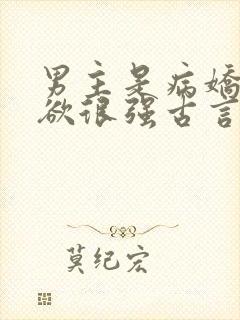 男主是病娇
欲很强古言
莫纪宏